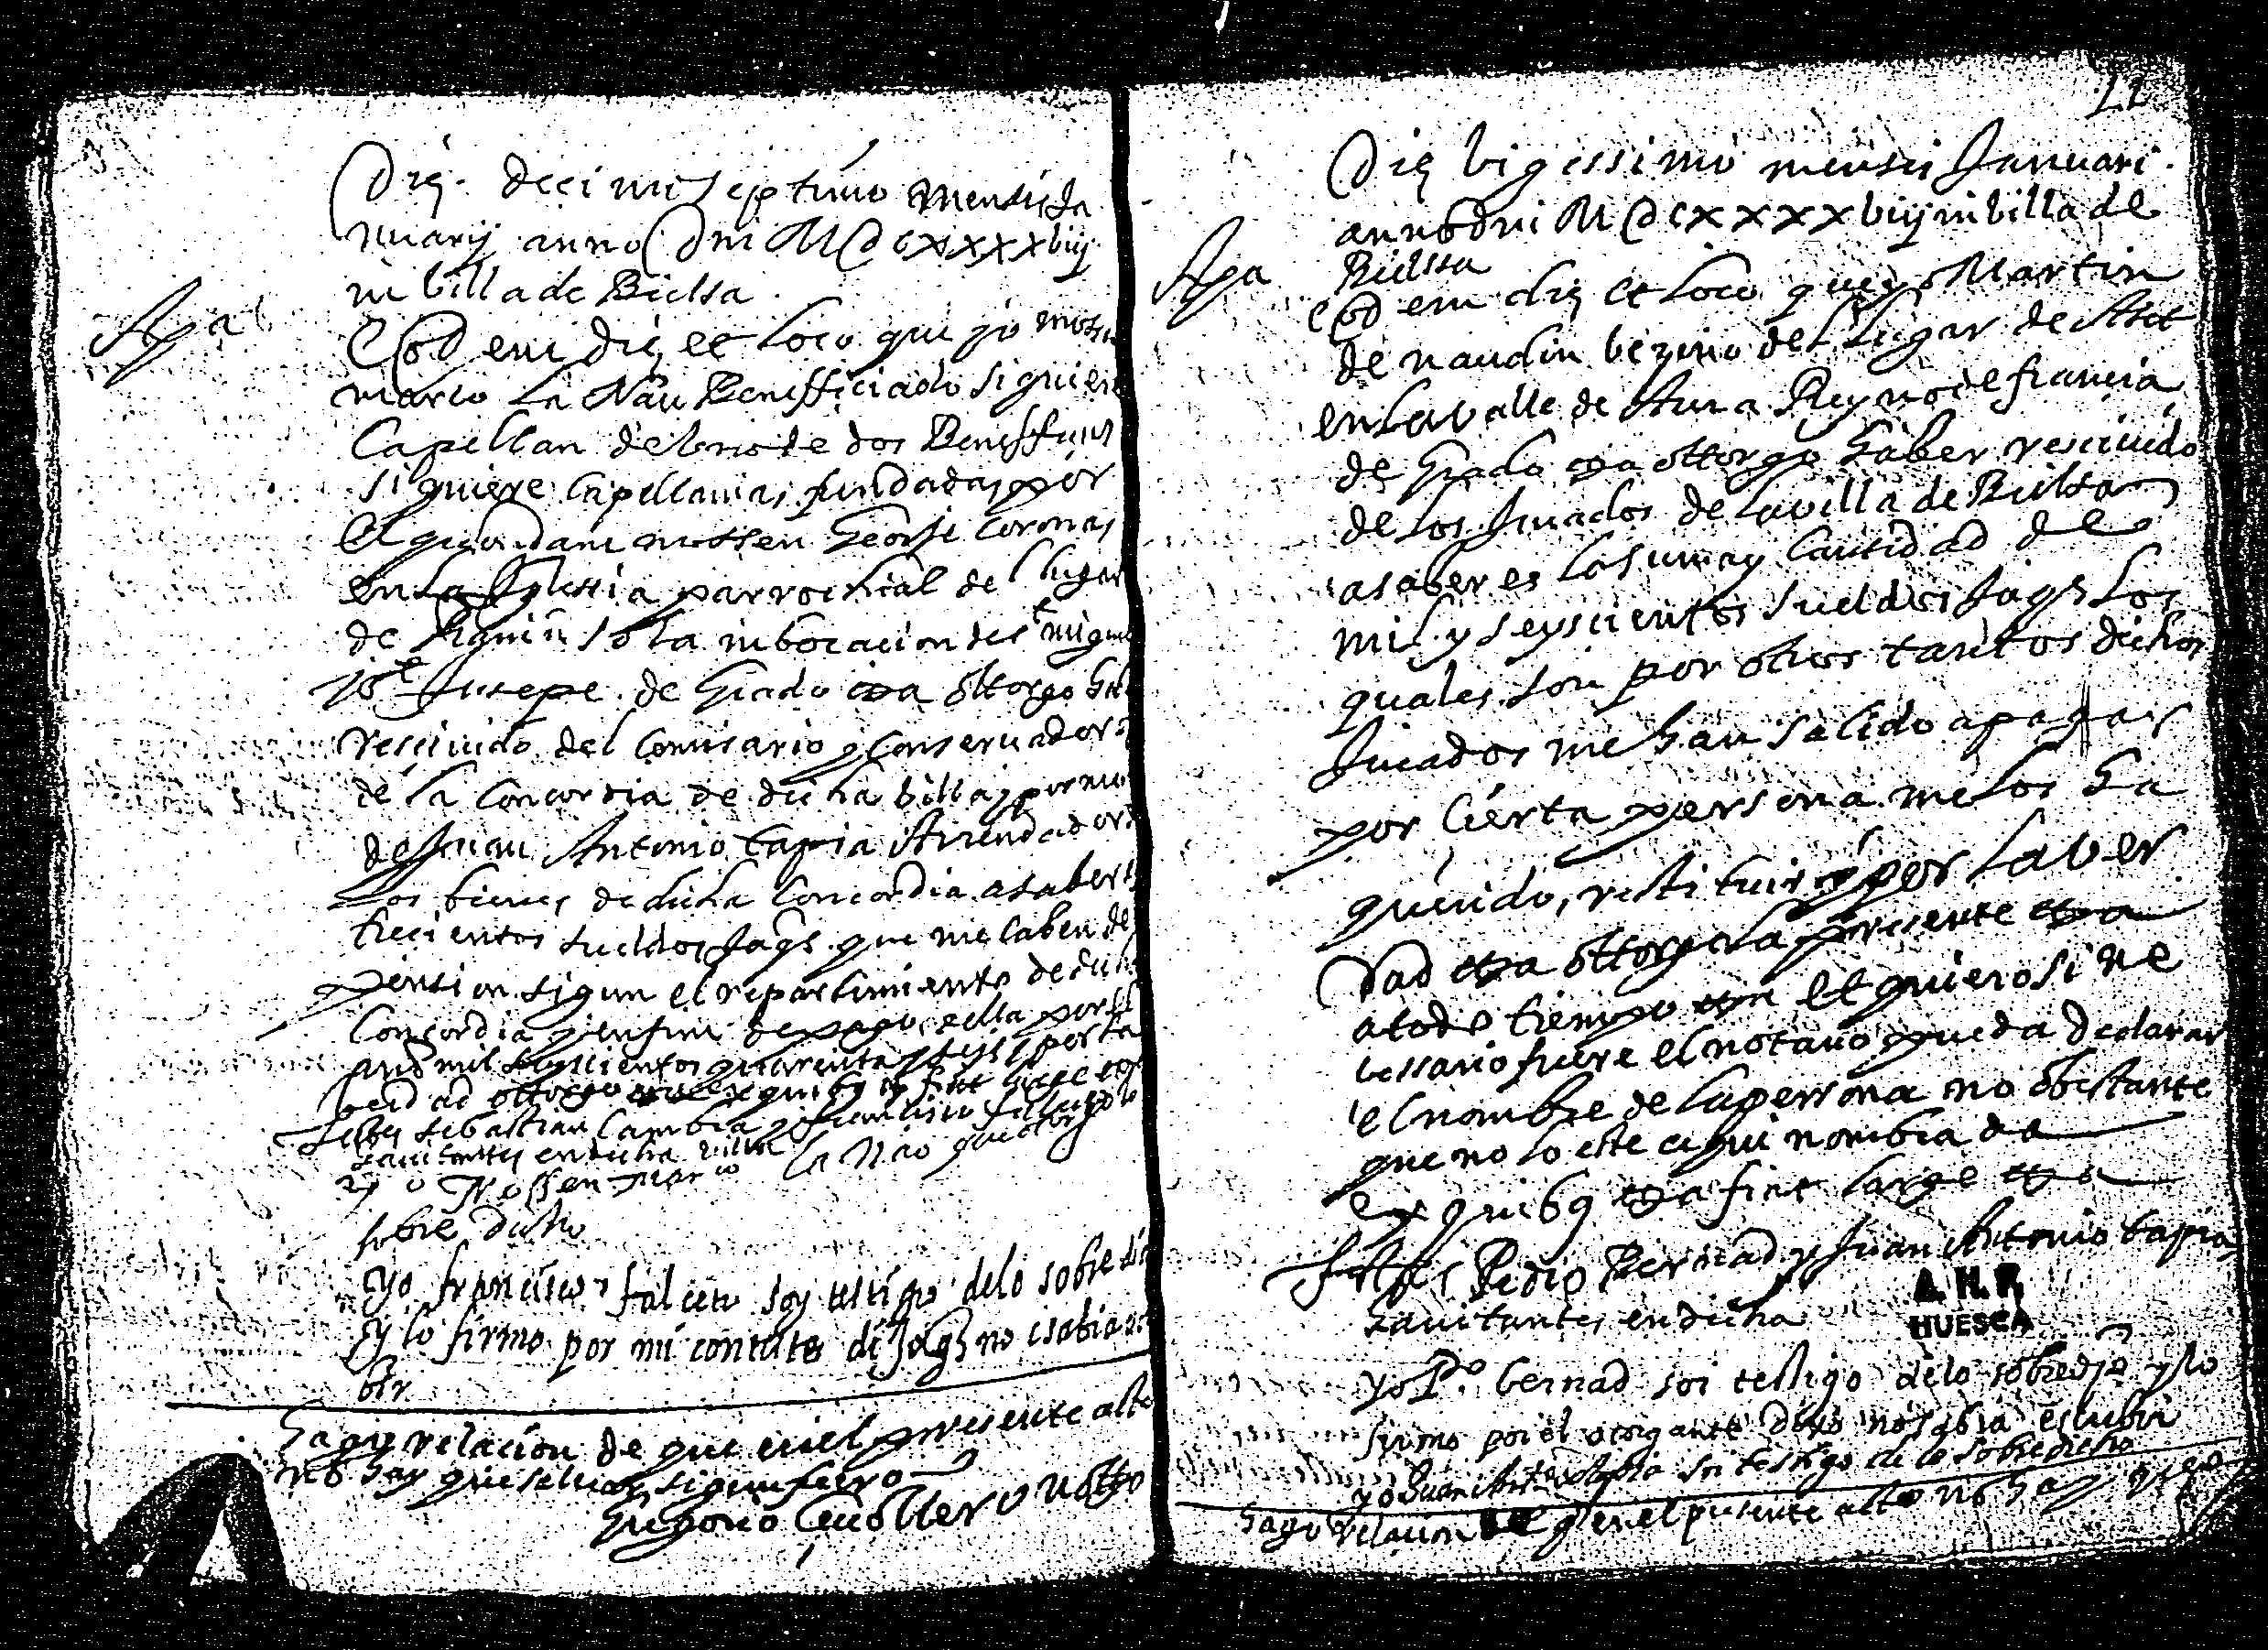 Die decimiseptimo mensis Ja
nuarij anno Dni MDCxxxxbiij
in billa de Bielsa
Apa
Eod em die et loco que yo mosen
marco la Nau Benefficiado siquiere
Capellan del uno de dos Beneffi
siquiere Capellanias fundadas por
el quondam mossen Jeorje Coronas
en la Iglessia parrochial del lugar
de so la inbocacion de st miguel
Jusepe de Grado cça ottorgo hab
resciuido del Comisario y Conseruador
de la Concordia de dicha billa y por
de Juan Antonio tapia Arrendador
Los bienes de dicha Concordia a saber es
trecientos sueldos Jaqs que me caben de
pension sigun el repartimiento de dicha
Concordia y enfin de pago della por el
año mil seyscientos quarenta y seys y por la
berdad ottorgo ex quibus fiat large
testes Sebastian Cambra y francisco falceto
hauitantes en dicha billa
yo Mossen marco la Nao que otorgo lo
sobre dicho
Yo francisco falceto soy testigo delo sobre di
y lo firmo por mi contute di Jaqs no
bir
Hago relacion de que en el presente acto
no hay que saluar sigun fuero
Gregorio notto
Die bigessimo mensis Januari
anno dni MDCxxxxbiij in billa de
Bielssa
Apa
Eod em die et loco que yo Martin
de naudin bezino del lugar de
en la valle de Aura Reyno de francia
de Grado cça ottorgo haber resciuido
de los Jurados de la villa de Bielsa
a saber es la suma y Cantidad de
mil y seyscientos sueldos Jaqs los
quales son por otros tantos dichos
Jurados me han salido a pagar
por Cierta persona me los ha
querido restituir y por la ver
dad cça ottorgo la presente cça
a todo tiempo et quiero si ne
cessario fuere el notario pueda declarar
el nombre de la perssona no obstante
que no lo este aqui nombrada
ex quibus cça fiat large cça
testes Pedro Bernad y Juan Antonio tapia
hauitantes en dicha
A. H. P.
HUESCA
yo Po. bernad soi testigo delo sobredjo y lo
firmo por el otorgante dixo no sabia escribir
yo Juan Anto tapia soi testigo de lo sobredicho
Hago relacion de q en el presente acto no hay que